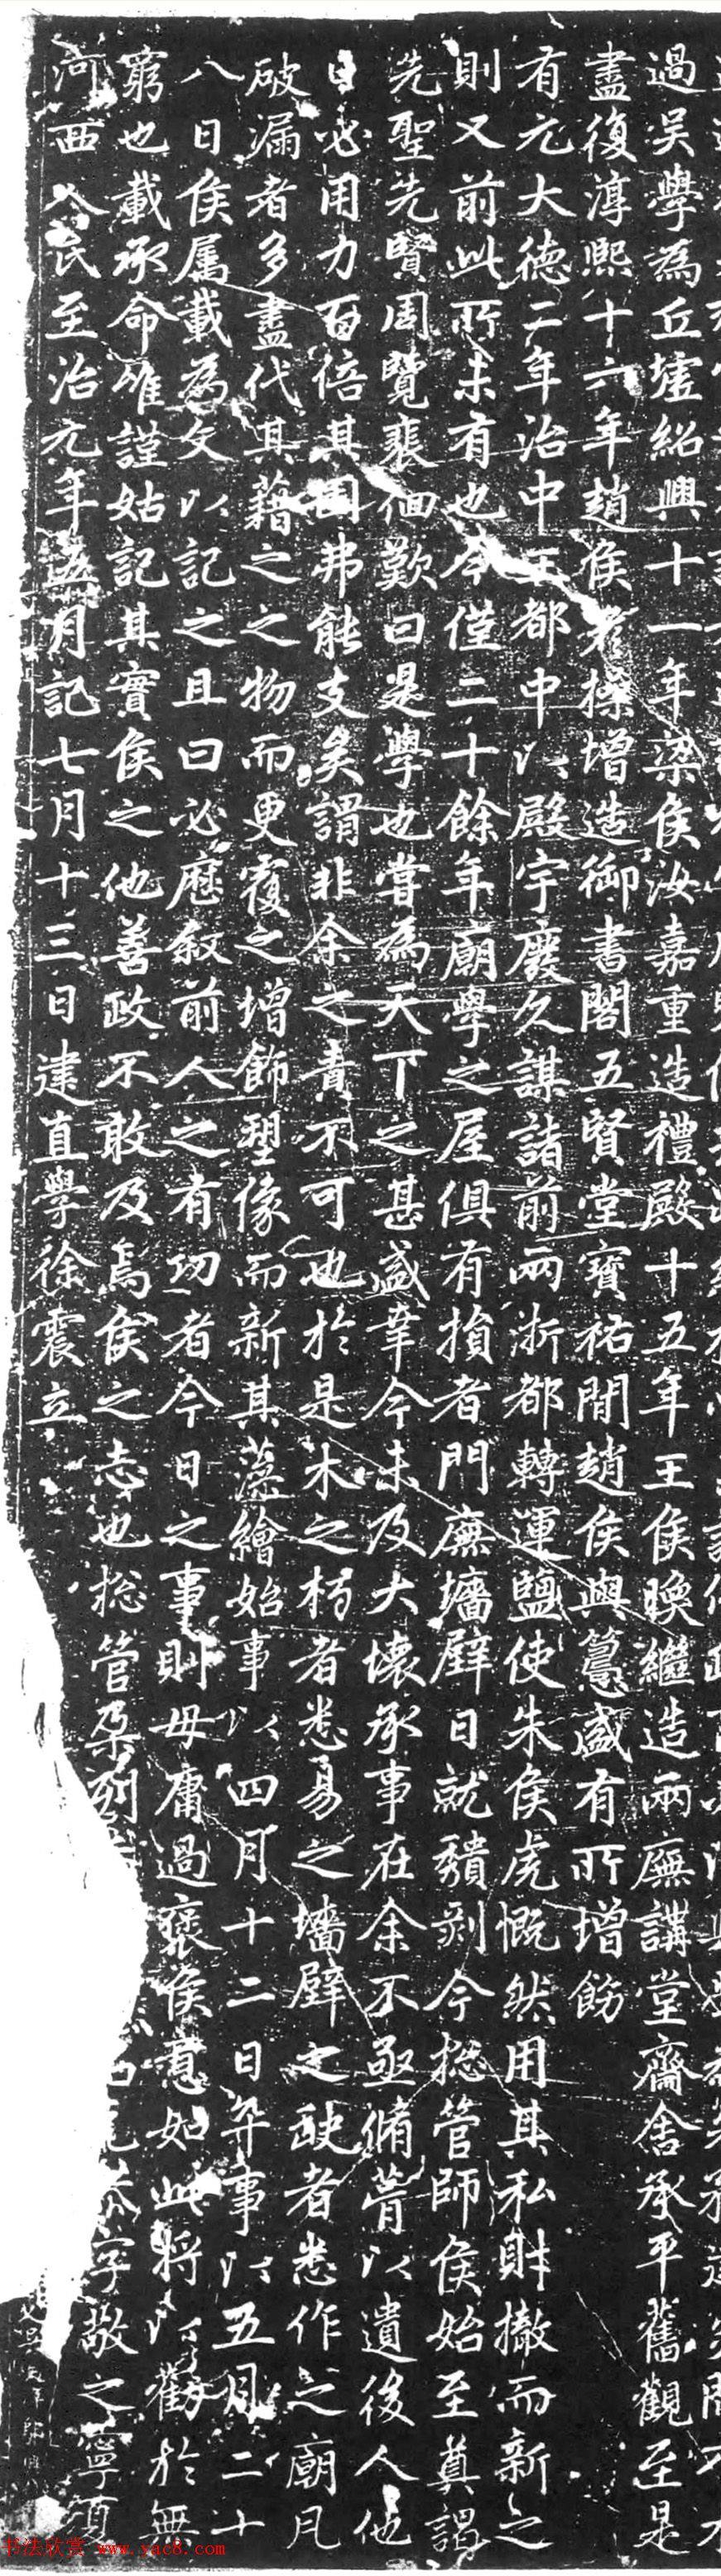 過吳學為丘墟紹興十一年梁侯汝嘉重造禮殿十五年王侯㬇繼造兩廡講堂齋舍承平舊觀至是
盡復淳熙十六年趙侯彥操增造御書閣五賢堂寶祐間趙侯與𥲅盛有所增飭
有元大德二年治中王都中以殿宇廢久謀諸前兩浙都轉運鹽使朱侯虎慨然用其私財撤而新之
則又前此所未有也今僅二十餘年廟學之屋俱有損者門廡墻壁日就隳剝今揔管師侯始至奠謁
先聖先賢周覽裴佪歎曰是學也嘗為天下之甚盛幸今未及大壞承事在余不亟脩葺以遺後人他
日必用力百倍其困弗能支矣謂非余之責不可也於是木之朽者悉易之墻壁之缺者悉作之廟凡
破漏者多盡代其藉之之物而更覆之增飾塑像而新其藻繪始事以四月十二日卒事以五月二十
八日侯属載為文以記之且曰必歷敘前人之有功者今日之事則毋庸過褒侯意如此將以勸於無
窮也載承命唯謹姑記其實侯之他善政不敢及焉侯之志也揔管朶列 字敬之寧
河西人氏至治元年五月記七月十三日建直學徐震立
书法欣赏 www.yac8.com